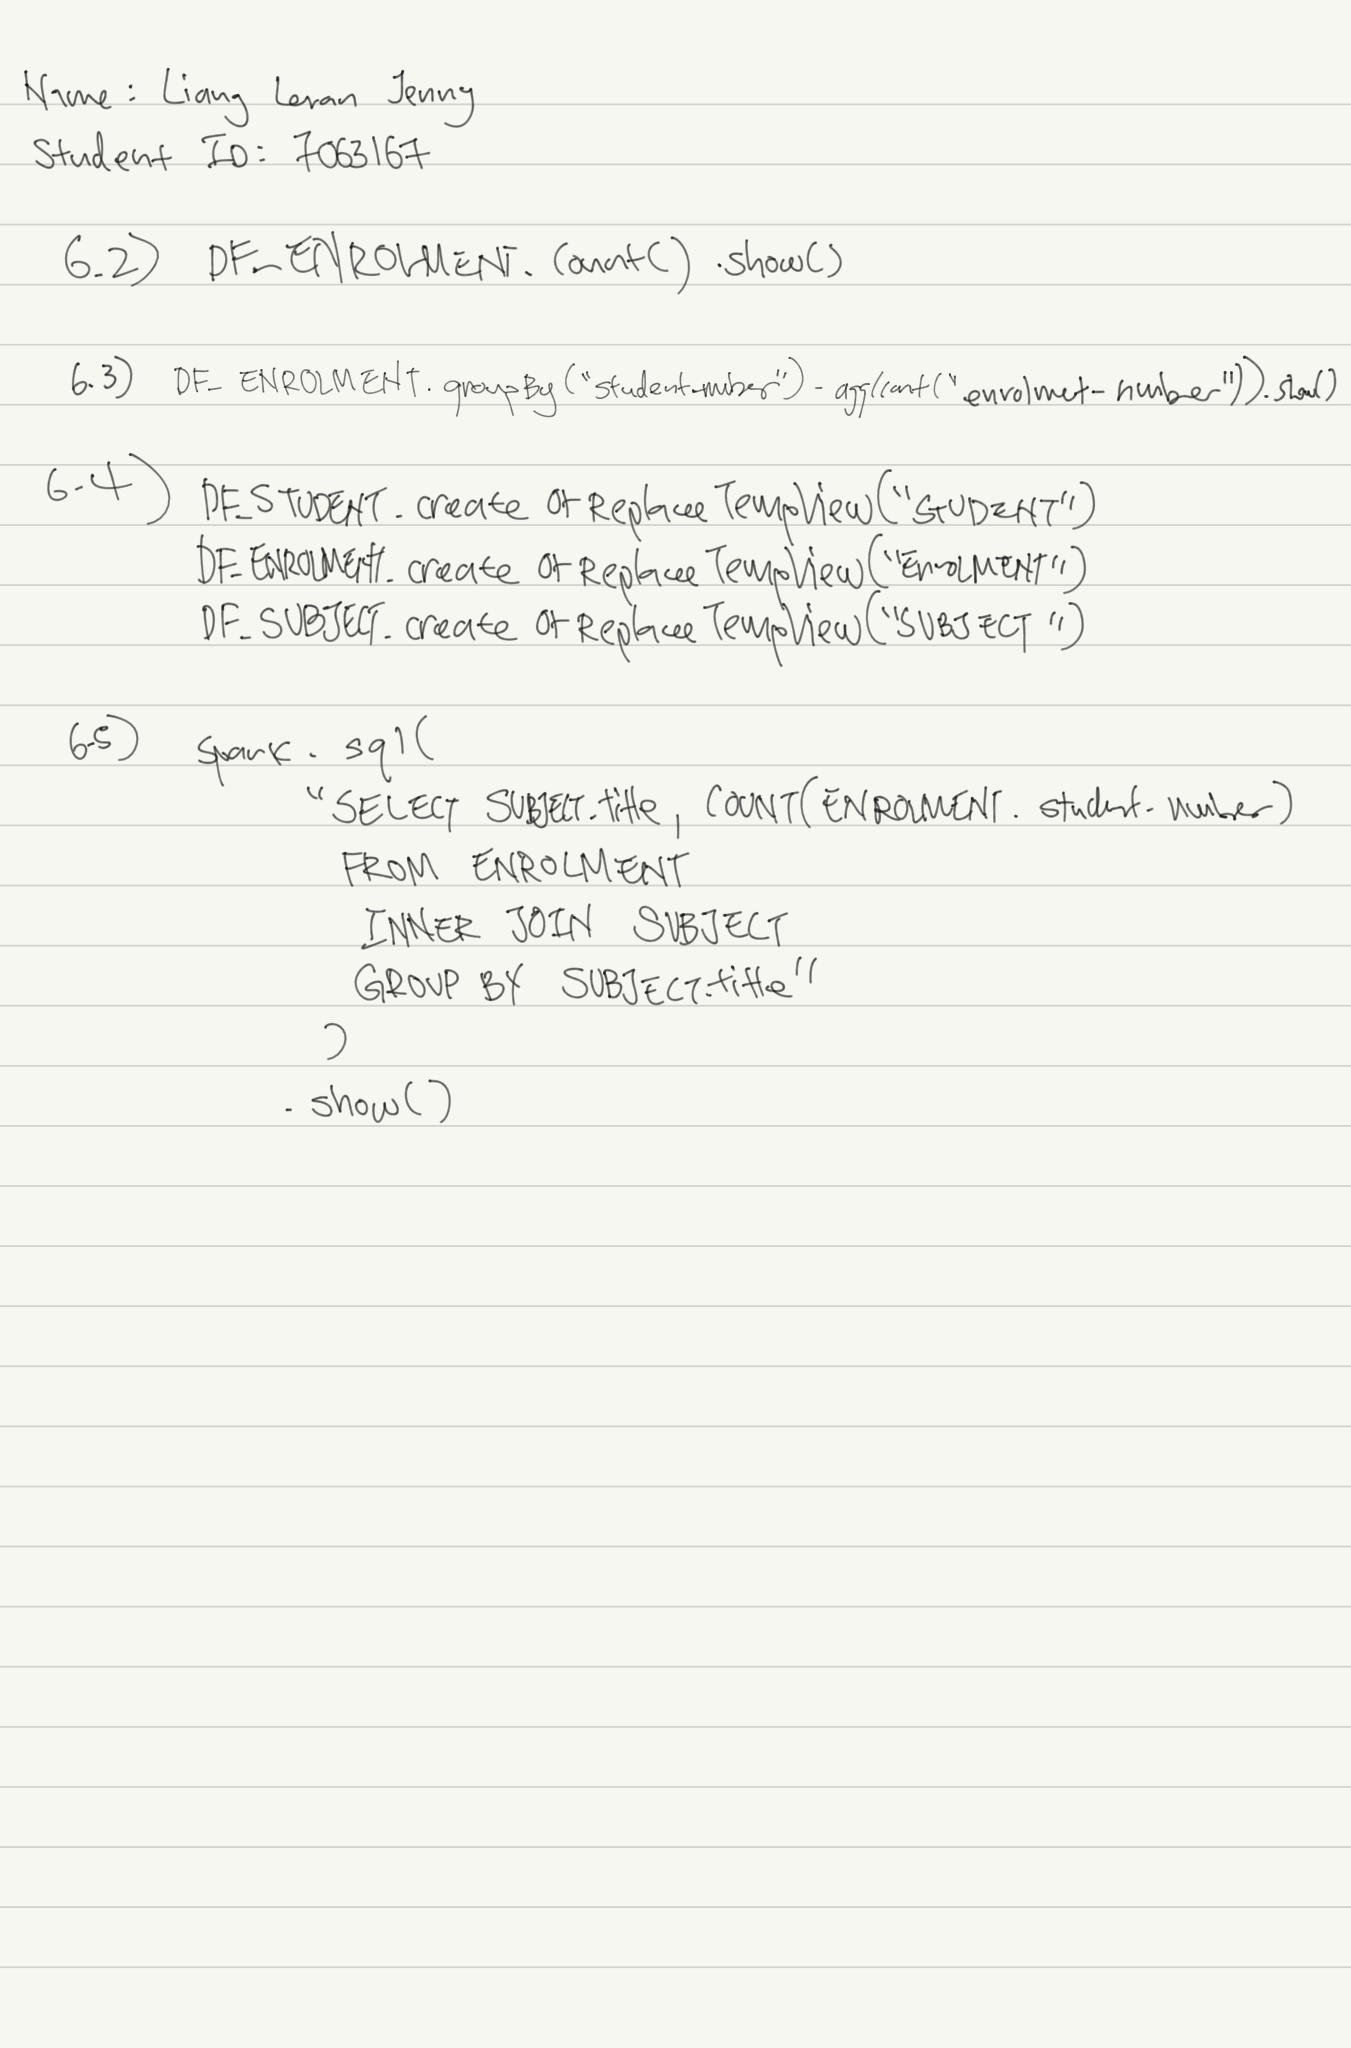 Name: Liang Leran Jenny
Student ID: 7063167
6.2) DF_ENROLMENT.count().show()
6.3) DF_ENROLMENT.groupBy("student-number").agg(count("enrolmet-number")).show()
6.4) DF_STUDENT.createOrReplaceTempView("STUDENT")
DF_ENROLMENT.createOrReplaceTempView("EnrolMENT")
DF_SUBJECT.createOrReplaceTempView("SUBJECT")
6.5) spark.sql(
"SELECT SUBJECT.title, COUNT(ENROLMENT.student-number)
FROM ENROLMENT
INNER JOIN SUBJECT
GROUP BY SUBJECT.title"
)
.show()